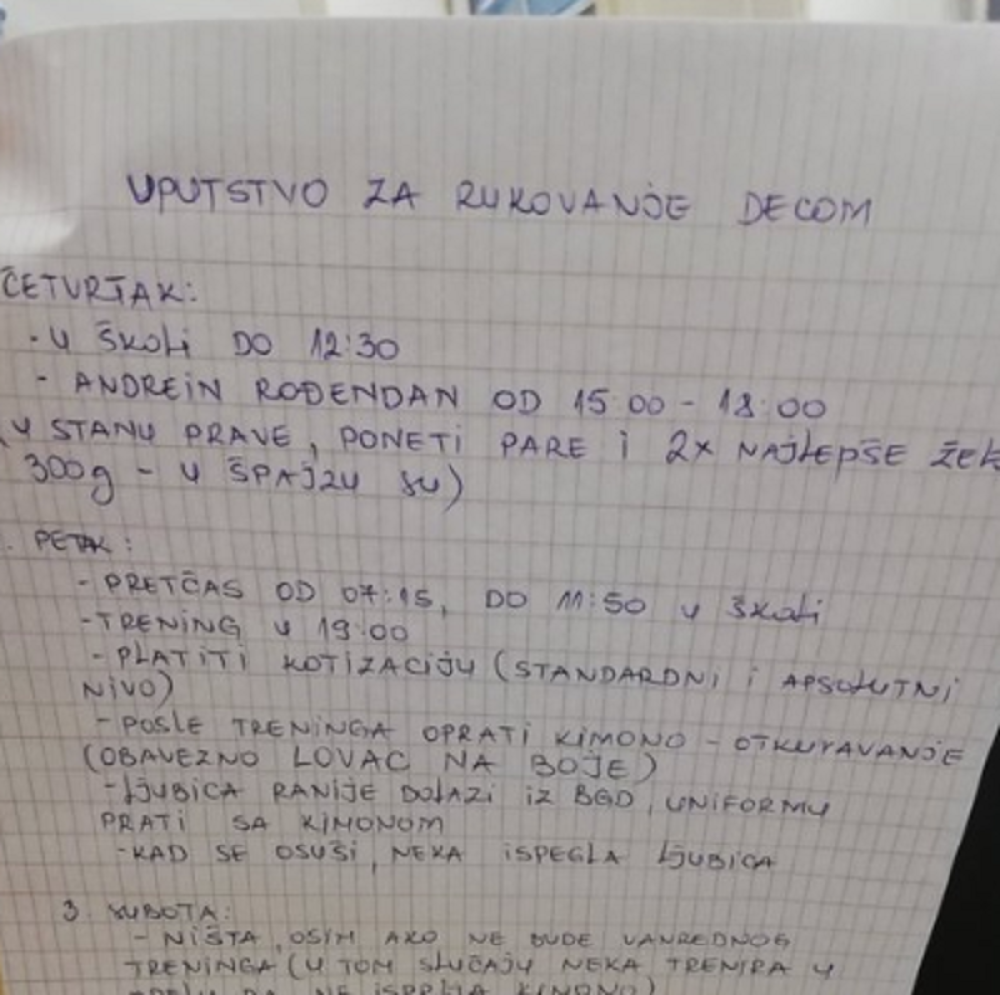 UPUTSTVO ZA RUKOVANJE DECOM
ČETVRTAK:
- U ŠKOLI DO 12:30
- ANDREIN ROĐENDAN OD 15:00 - 18:00
(U STANU PRAVE, PONETI PARE I 2x NAJLEPŠE ŽEL
300g - U ŠPAJZU SU)
. PETAK:
- PRETČAS OD 07:15, DO 11:50 U ŠKOLI
- TRENING U 19:00
- PLATITI KOTIZACIJU (STANDARDNI I APSOLUTNI
NIVO)
- POSLE TRENINGA OPRATI KIMONO - OTKUVAVANJE
(OBAVEZNO LOVAC NA BOJE)
- LJUBICA RANIJE DOLAZI IZ BGD, UNIFORMU
PRATI SA KIMONOM
- KAD SE OSUŠI, NEKA ISPEGLA LJUBICA
3. SUBOTA:
- NIŠTA, OSIM AKO NE BUDE VANREDNOG
TRENINGA (U TOM SLUČAJU NEKA TRENIRA U
DA NE ISPRLJA KIMONO)